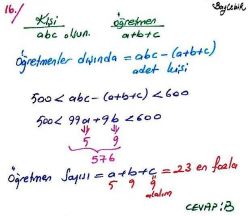 16.
BayÇebik
Kişi öğretmen
abc olsun. a+b+c
Öğretmenler dışında = abc - (a+b+c)
adet kişi
500 < abc - (a+b+c) < 600
500 < 99a + 9b < 600
5 9
576
Öğretmen Sayısı = a+b+c = 23 en fazla
5 9 9
alalım
CEVAP: B